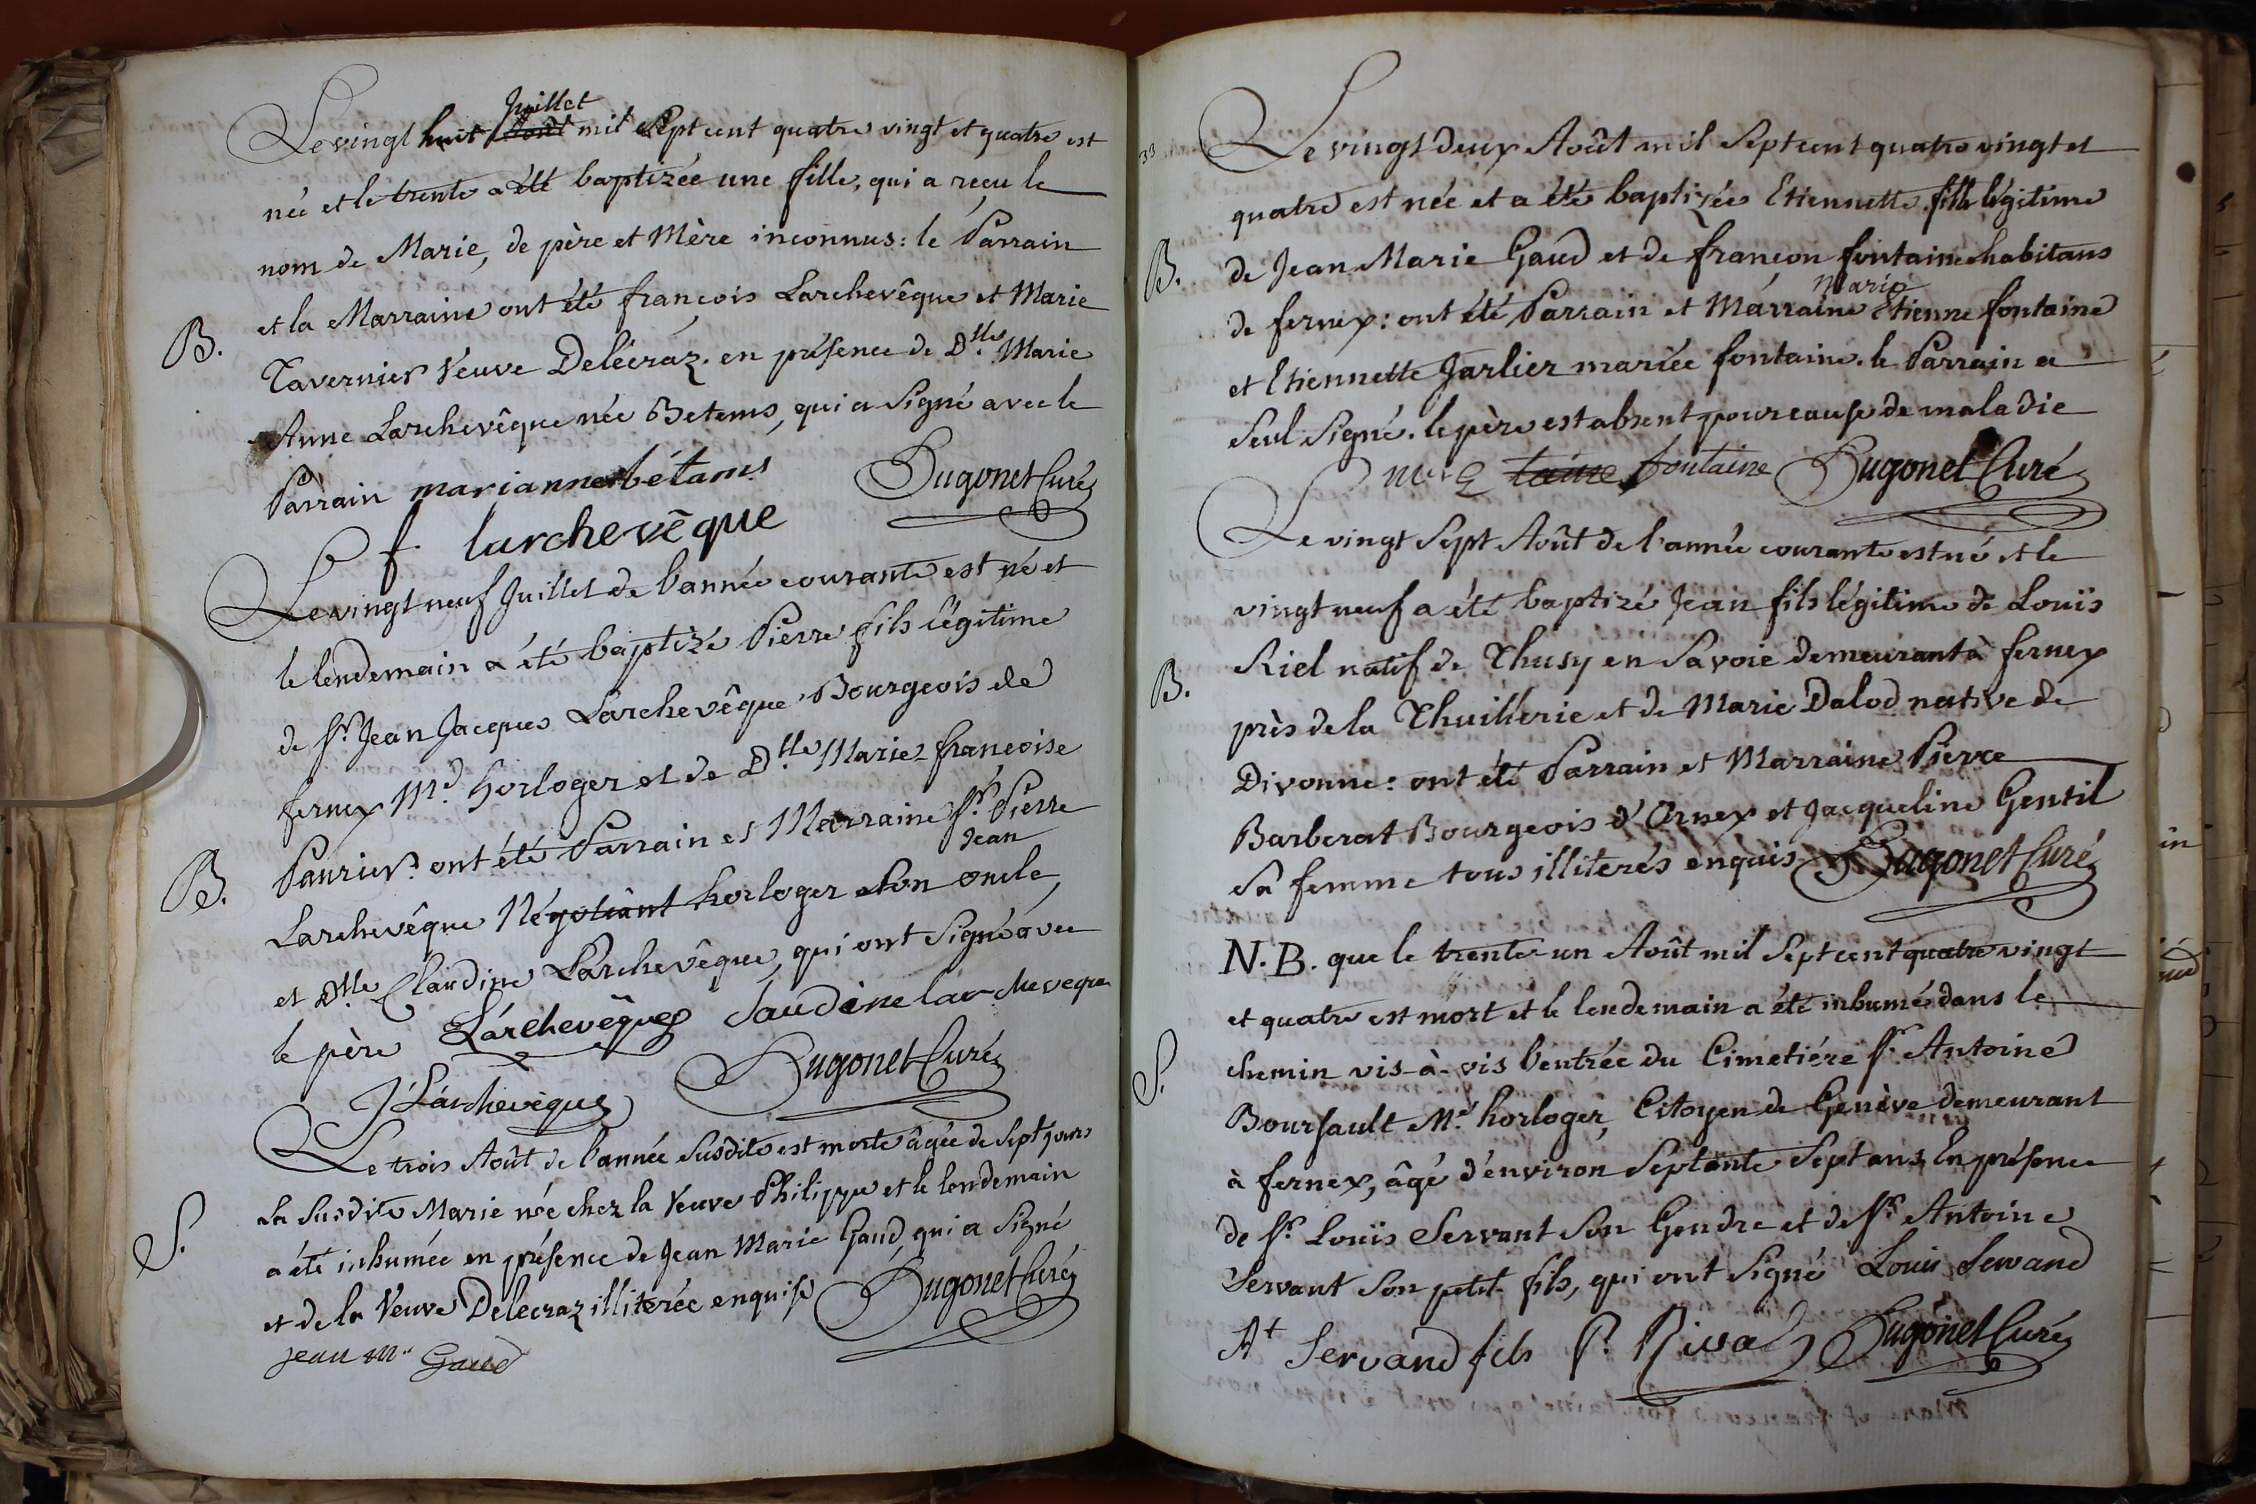 Juillet
Le vingt huit Août mil Sept cent quatre vingt et quatre est
née et le trente a été baptizée une fille, qui a reçu le
nom de Marie, de père et Mère inconnus: le Parrain
et la Marraine ont été françois Larchevêque et Marie
B.
Tavernier Veuve Delécraz. en présence de Dlle Marie
Anne Larchevêque née Betems, qui a Signé avec le
Parrain marianne bétams Dugonet Curé
f larchevêque
Le vingt neuf Juillet de l'année courante est né et
le lendemain a été baptizé Pierre fils légitime
de Sr. Jean Jacques Larchevêque Bourgeois de
fernex Md. horloger et de Dlle Marie françoise
Paurier. ont été Parrain et Marraine Sr. Pierre
Jean
B.
Larchevêque Négotiant horloger Son oncle,
et Dlle Claudine Larchevêque, qui ont Signé avec
le père Lárchevêque Claudine larchuveque
J Lárchevêque Dugonet Curé
Le trois Août de l'année Susdite est morte âgée de Sept jours
La Susdite Marie née chez la Veuve Philippe et le lendemain
S.
a été inhumée en présence de Jean Marie Gaud, qui a Signé
et de la Veuve Delecraz illiterée enquise Dugonet Curé
jean Mie Gaud
Le vingt deux Août mil Sept cent quatre vingt et
quatre est née et a été baptizée Etiennette fille légitime
B.
de Jean Marie Gaud et de françon fontaine habitans
Marie
de fernex: ont été Parrain et Marraine Etienne fontaine
et Etiennette Jarlier mariée fontaine. le Parrain a
Seul Signé. le père est absent pour cause de maladie
taine fontaine Dugonet Curé
Le vingt Sept Août de l'année courante est né et le
vingt neuf a été baptizé Jean fils légitime de Louïs
Riel natif de Thusy en Savoie demeurant à fernex
B.
près de la Thuillerie et de Marie Dalod native de
Divonne: ont été Parrain et Marraine Pierre
Barberat Bourgeois d'Ornex et Jacqueline Gentil
Sa femme tous illiterés enquis Dugonet Curé
N.B. que le trente un Août mil Sept cent quatre vingt
et quatre est mort et le lendemain a été inhumé dans le
chemin vis-à-vis l'entrée du Cimetiére Sr. Antoine
S.
Boursault Md. horloger, Citoyen de Genève demeurant
à fernex, âgé d'environ Septante Sept ans. En présence
de Sr. Louïs Servant Son Gendre et de Sr. Antoine
Servant Son petit-fils, qui ont Signé Louis Servand
At Servand fils P. Rival Dugonet Curé